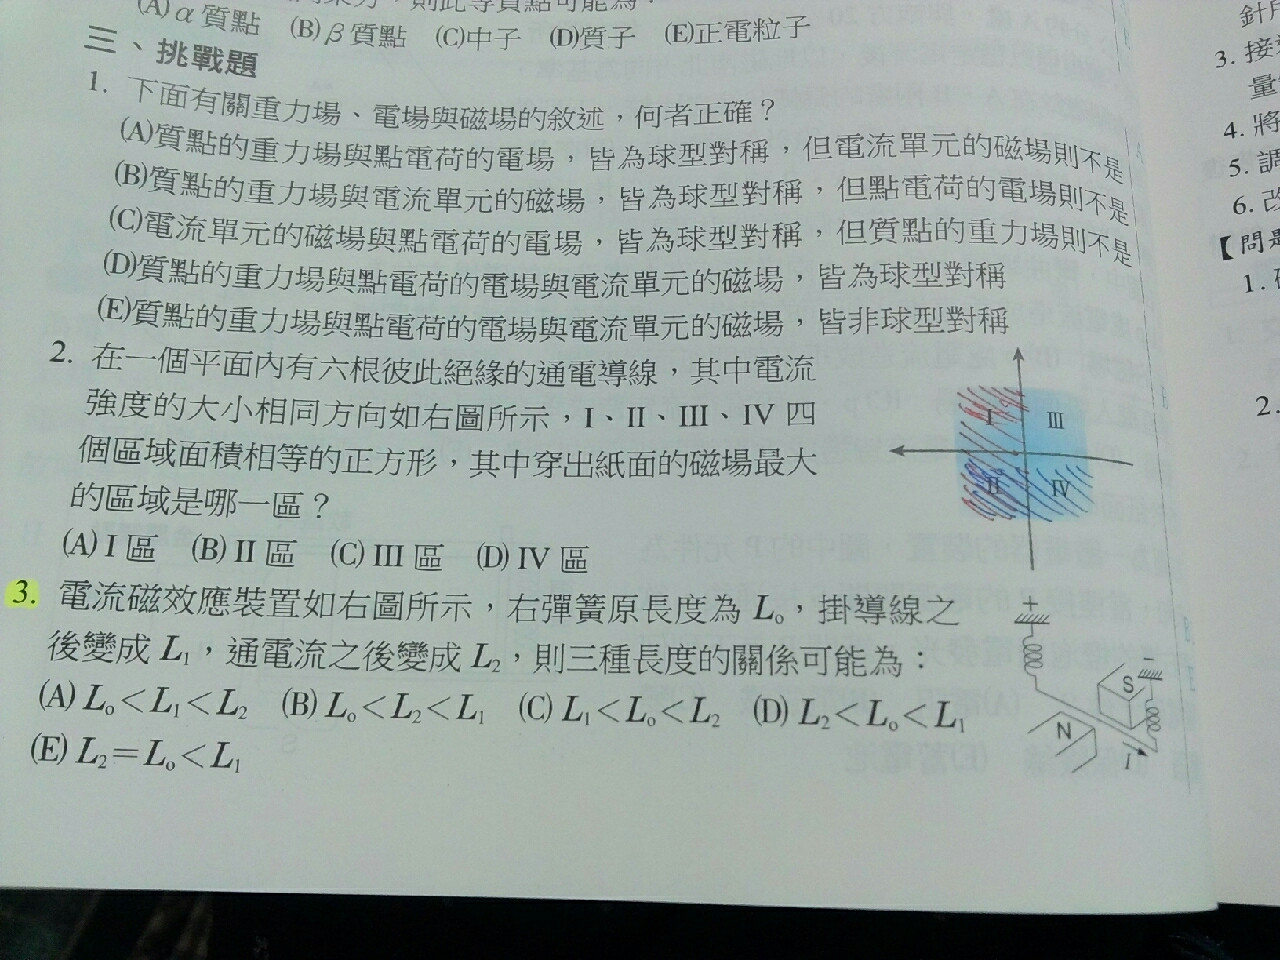 (A)α質點 (B)β質點 (C)中子 (D)質子 (E)正電粒子
三、挑戰題
1. 下面有關重力場、電場與磁場的敘述，何者正確？
(A)質點的重力場與點電荷的電場，皆為球型對稱，但電流單元的磁場則不是
(B)質點的重力場與電流單元的磁場，皆為球型對稱，但點電荷的電場則不是
(C)電流單元的磁場與點電荷的電場，皆為球型對稱，但質點的重力場則不是
(D)質點的重力場與點電荷的電場與電流單元的磁場，皆為球型對稱
(E)質點的重力場與點電荷的電場與電流單元的磁場，皆非球型對稱
2. 在一個平面內有六根彼此絕緣的通電導線，其中電流
強度的大小相同方向如右圖所示，I、II、III、IV 四
個區域面積相等的正方形，其中穿出紙面的磁場最大
的區域是哪一區？
(A) I 區 (B) II 區 (C) III 區 (D) IV 區
I III
II IV
3. 電流磁效應裝置如右圖所示，右彈簧原長度為 L₀，掛導線之
後變成 L₁，通電流之後變成 L₂，則三種長度的關係可能為：
(A) L₀＜L₁＜L₂ (B) L₀＜L₂＜L₁ (C) L₁＜L₀＜L₂ (D) L₂＜L₀＜L₁
(E) L₂＝L₀＜L₁
+ −
S
N
I
針
3. 接
量
4. 將
5. 調
6. 改
【問
1.
2.